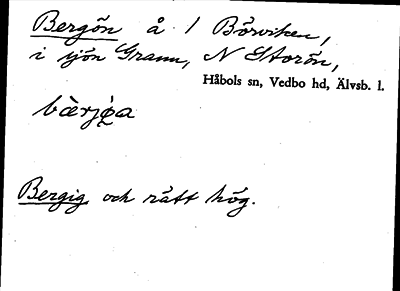 Bergön å / Börviken,
i sjön Grann, N Storön,
Håbols sn, Vedbo hd, Älvsb. l.
Bergig och rätt hög.